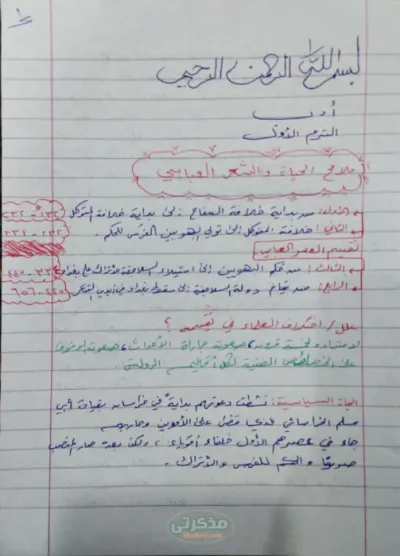 بسم الله الرحمن الرحيم
أدب
الترم الأول
ملامح الحياة والشعر العباسي
الأول: من بداية خلافة السفاح إلى بداية خلافة المتوكل ١٣٢ - ٢٣٢
الثاني: خلافة المتوكل إلى تولي البويهيين الفرس للحكم ٢٣٢ - ٣٣٤
تقسيم العصر العباسي
الثالث: من حكم البويهيين إلى استيلاء السلاجقة الأتراك على بغداد ٣٣٤ - ٤٤٥
الرابع: من قيام دولة السلاجقة إلى سقوط بغداد في أيدي التتار ٤٤٥ - ٦٥٦
علل / اختلاف العلماء في تقسيمه ؟
لامتداده لخمسة قرون، صعوبة مجاراة الأحداث، صعوبة الوقوف
على الخصائص الفنية لكل أقاليم الدولة
الحياة السياسية: نشطت دعوتهم بداية في خراسان بقيادة أبي
مسلم الخراساني الذي قضى على الأمويين
جاء في عصرهم الأول خلفاء أقوياء، ولكن بعده صار المنصب
صوريًا والحكم للفرس والأتراك.
مذكرتي